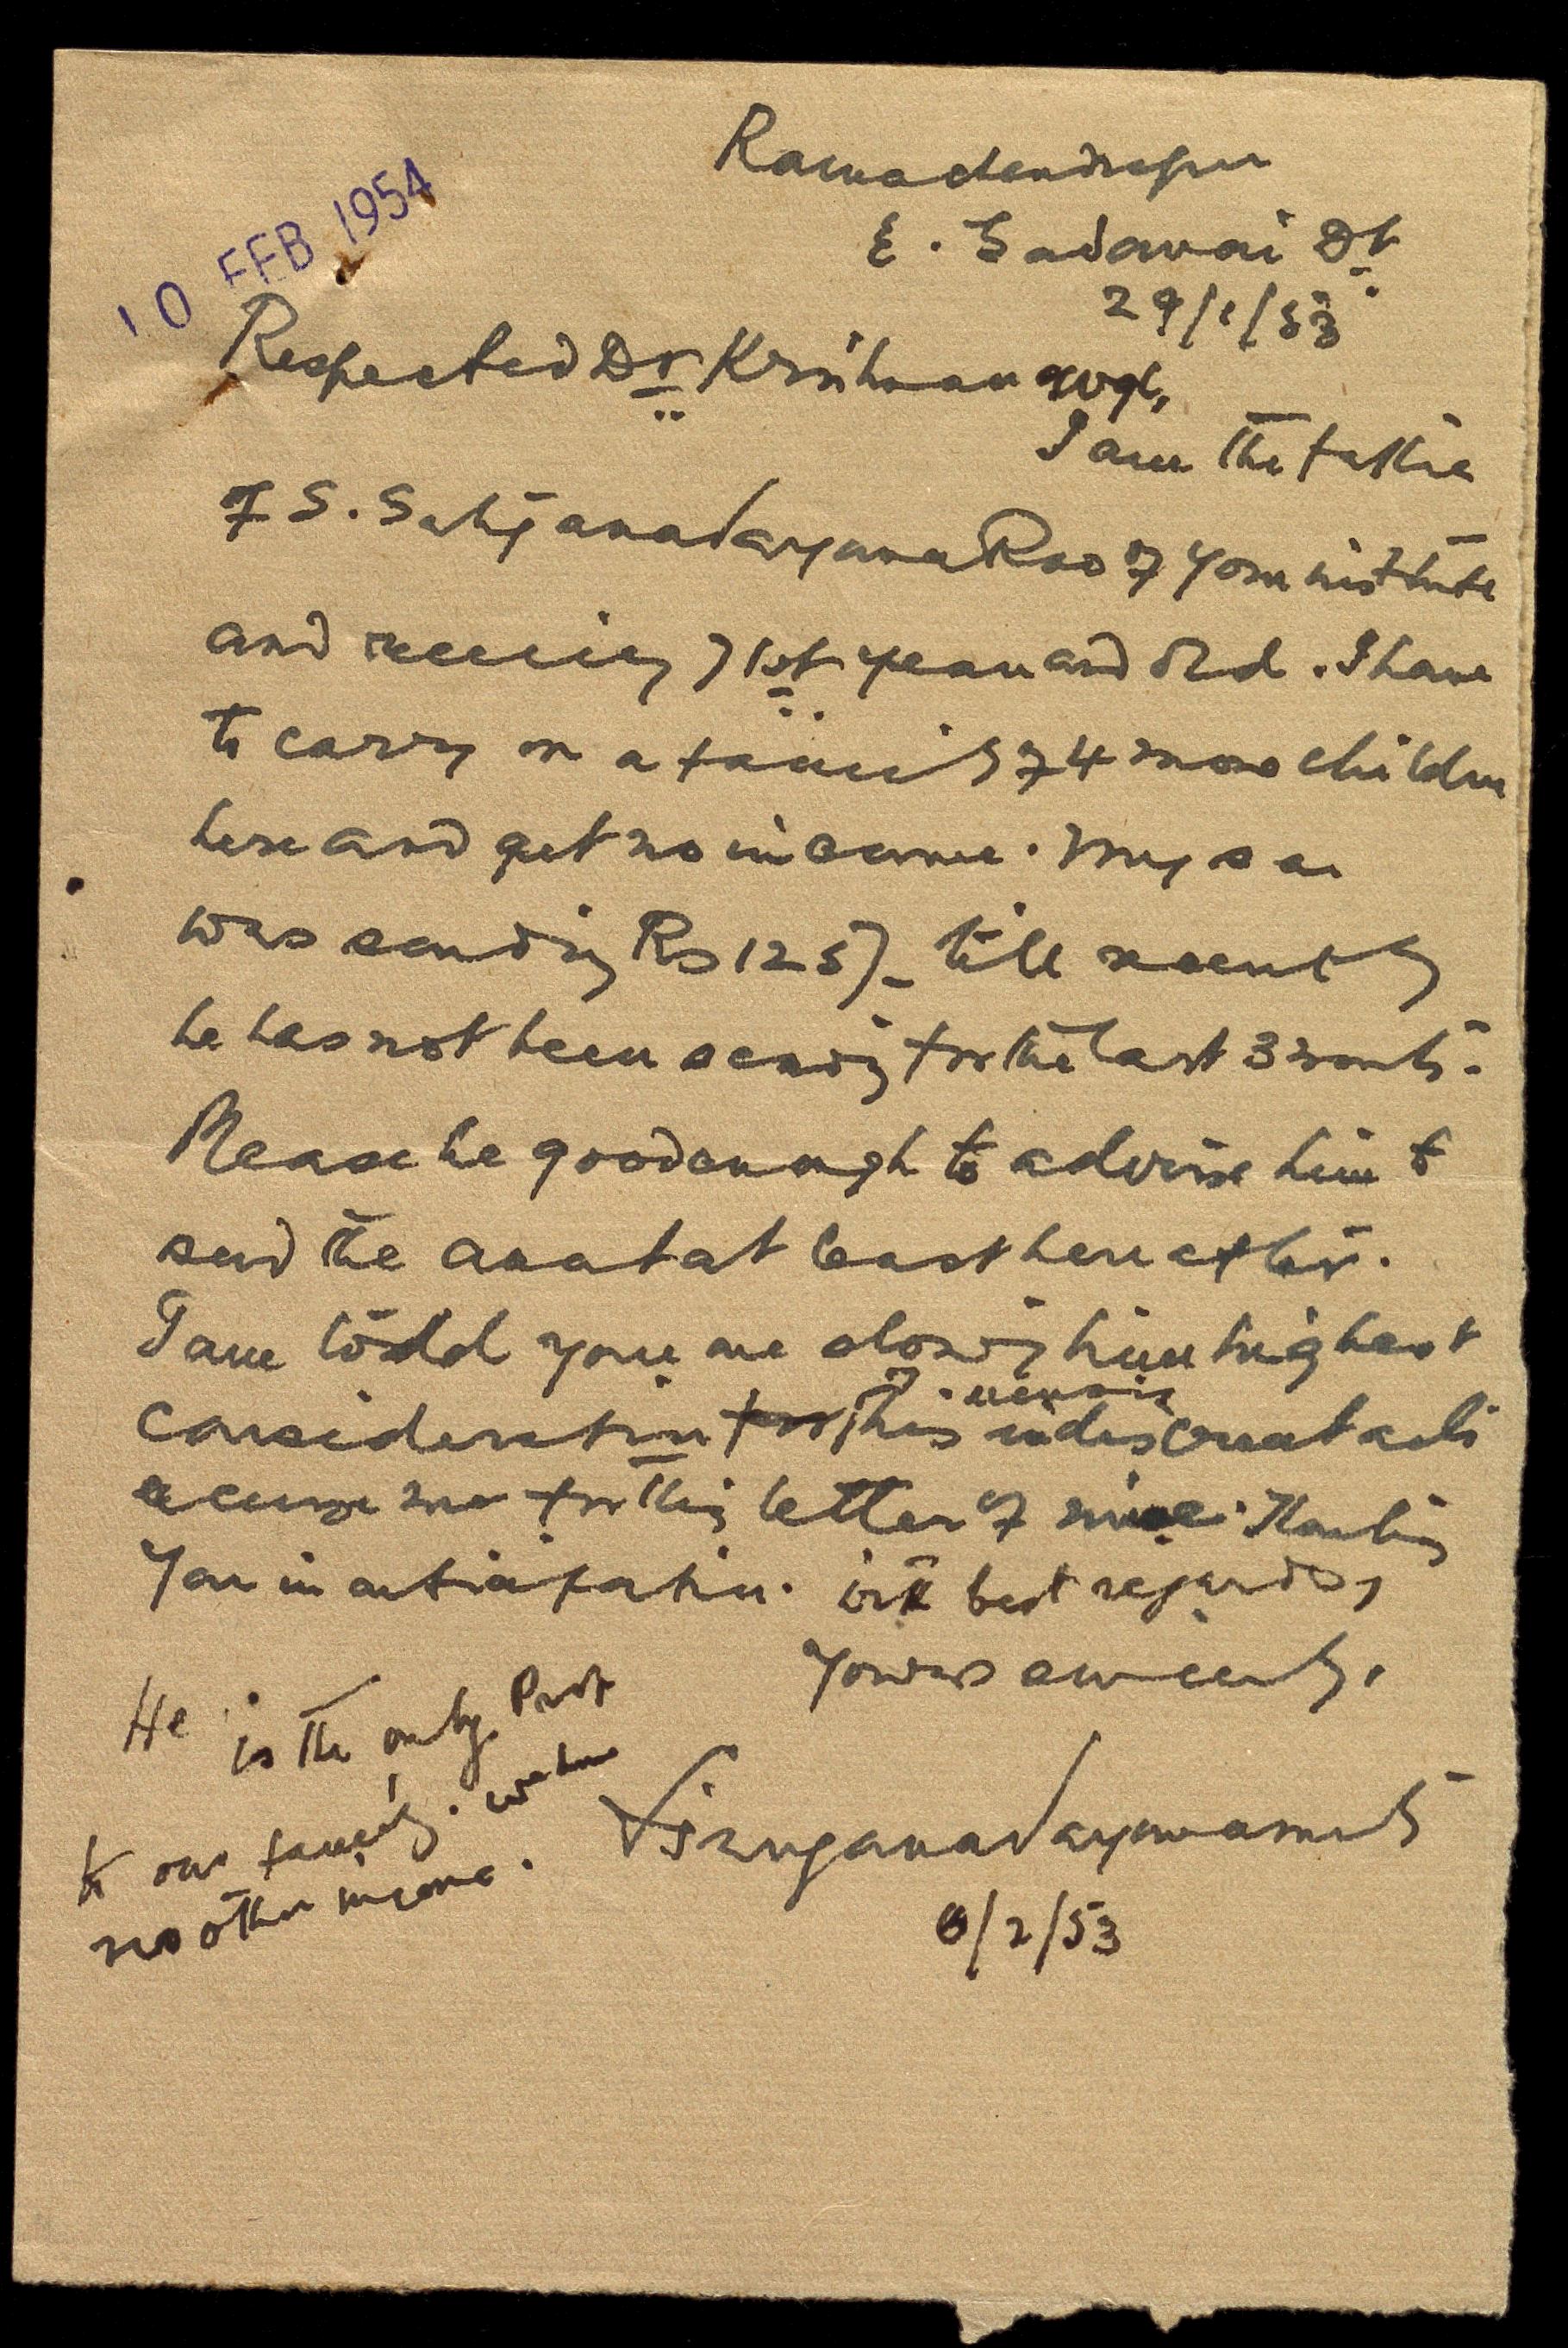 10 FEB 1954
Ramachandrapur
E. Godavari Dt.
29/1/53
Respected Dr Krishnan
I am the father
of S. Satyanarayana Rao of your institute
and 71st year and old. I have
to carry on a family of 4 more children
here and get no income. My son
was sending Rs 125/- till recently
he has not been sending for the last 3 months.
Please be good enough to advise him to
send the amt at least hereafter.
I am told you are showing him highest
consideration of his
excuse me for this letter of mine. Thanking
you in anticipation. with best regards,
Yours sincerely,
He is the only Prof
to our family. we have
no other income.
8/2/53